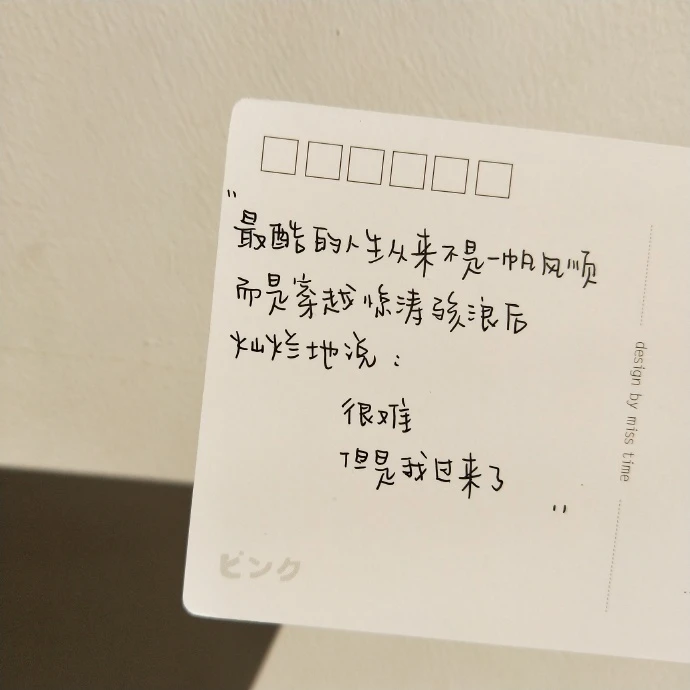 "
最酷的人生从来不是一帆风顺
而是穿越惊涛骇浪后
灿烂地说：
很难
但是我过来了
"
design by miss time
ピンク